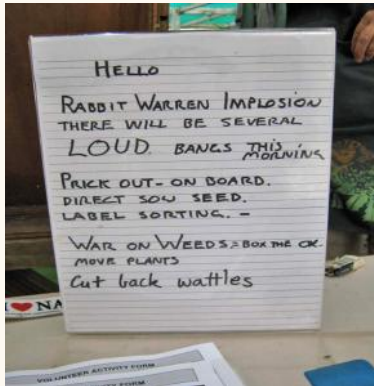 HELLO
RABBIT WARREN IMPLOSION
THERE WILL BE SEVERAL
LOUD BANGS THIS MORNING
PRICK OUT - ON BOARD.
DIRECT SOW SEED.
LABEL SORTING. -
WAR ON WEEDS = BOX THE OR
MOVE PLANTS
Cut back wattles
I ♥ NA
VOLUNTEER ACTIVITY FORM
ACTIVITY FORM